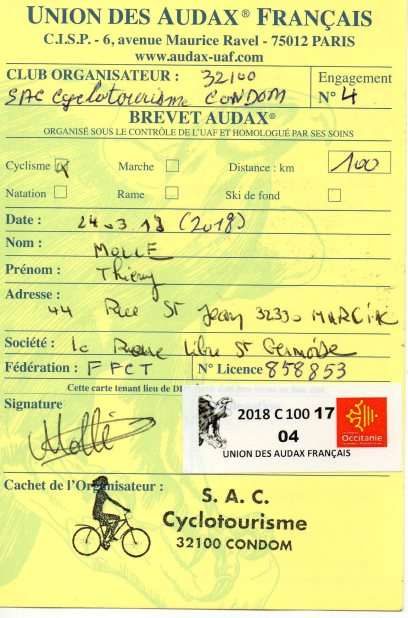 UNION DES AUDAX® FRANÇAIS
C.I.S.P. - 6, avenue Maurice Ravel - 75012 PARIS
www.audax-uaf.com
CLUB ORGANISATEUR : 32100
Engagement
SAC Cyclotourisme CONDOM
N° 4
BREVET AUDAX®
ORGANISÉ SOUS LE CONTRÔLE DE L'UAF ET HOMOLOGUÉ PAR SES SOINS
Cyclisme X Marche Distance : km 100
Natation Rame Ski de fond
Date : 24.03.18 (2018)
Nom : MOLLE
Prénom : Thierry
Adresse :
44 Rue St Jean 32330
Société : la Roue Libre St
Fédération : FFCT N° Licence 858853
Cette carte tenant lieu de
Signature
2018 C 100 17
04
UNION DES AUDAX FRANÇAIS
Occitanie
Cachet de l'Organisateur :
S. A. C.
Cyclotourisme
32100 CONDOM